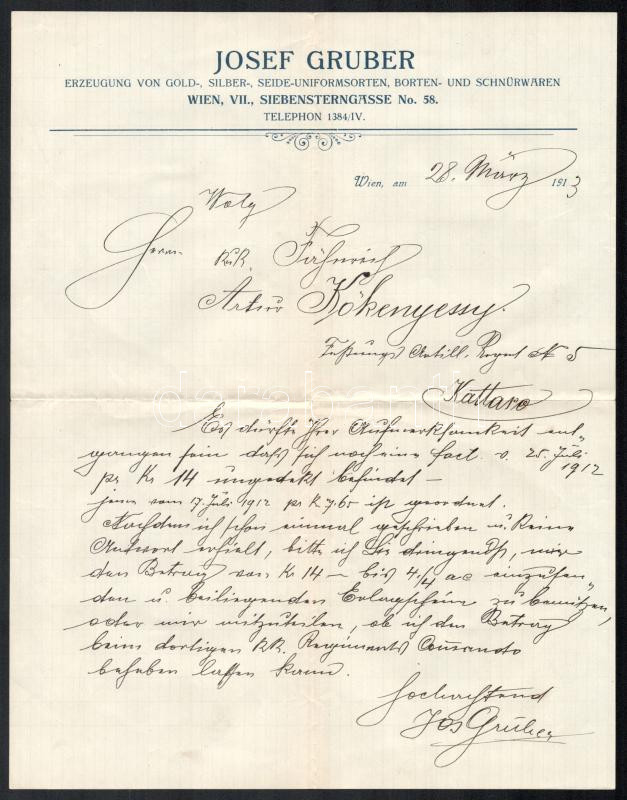 JOSEF GRUBER
ERZEUGUNG VON GOLD-, SILBER-, SEIDE-UNIFORMSORTEN, BORTEN- UND SCHNÜRWAREN
WIEN, VII., SIEBENSTERNGASSE No. 58.
TELEPHON 1384/IV.
Wien, am 28. März 1913
Herrn
k.k. Fähnrich
Artur Kökenyessy.
Festungs Artill. Regmt № 5
Kattaro
Es dürfte Ihrer Aufmerksamkeit ent„
gangen sein dass sich noch eine fact. v. 25. Juli
1912
pr Kr 14 ungedekt befindet –
jene vom 17 Juli 1912 pr K 7.65 ist geordnet.
Nachdem ich schon einmal geschrieben u. keine
Antwort erhielt, bitte ich Sie dringendst, mir
den Betrag von Kr 14 – bis 4./4 ac einzusen„
den u. beiliegenden Erlagschein zu benützen,
oder mir mitzuteilen, ob ich den Betrag
beim dortigen k.k. Regiments Comando
beheben lassen kann.
Hochachtend
Jos Gruber